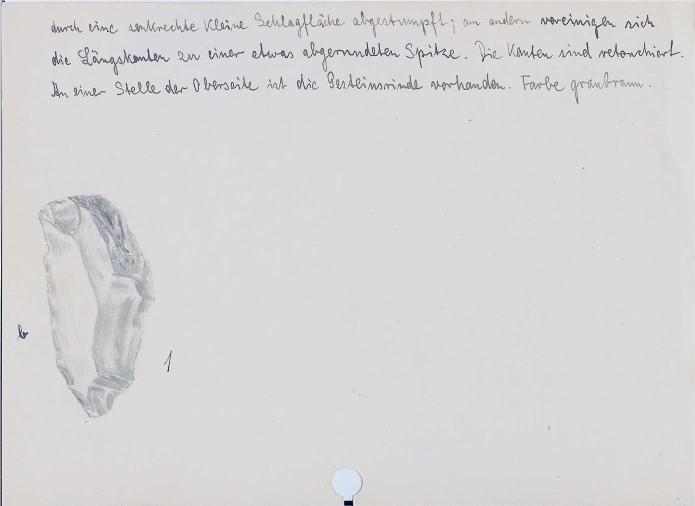 durch eine senkrechte kleine Schlagfläche abgestumpft; am andern vereinigen sich
die Längskanten zu einer etwas abgerundeten Spitze. Die Kanten sind retouchiert.
An einer Stelle der Oberseite ist die Gesteinsrinde vorhanden. Farbe graubraun.
b
1